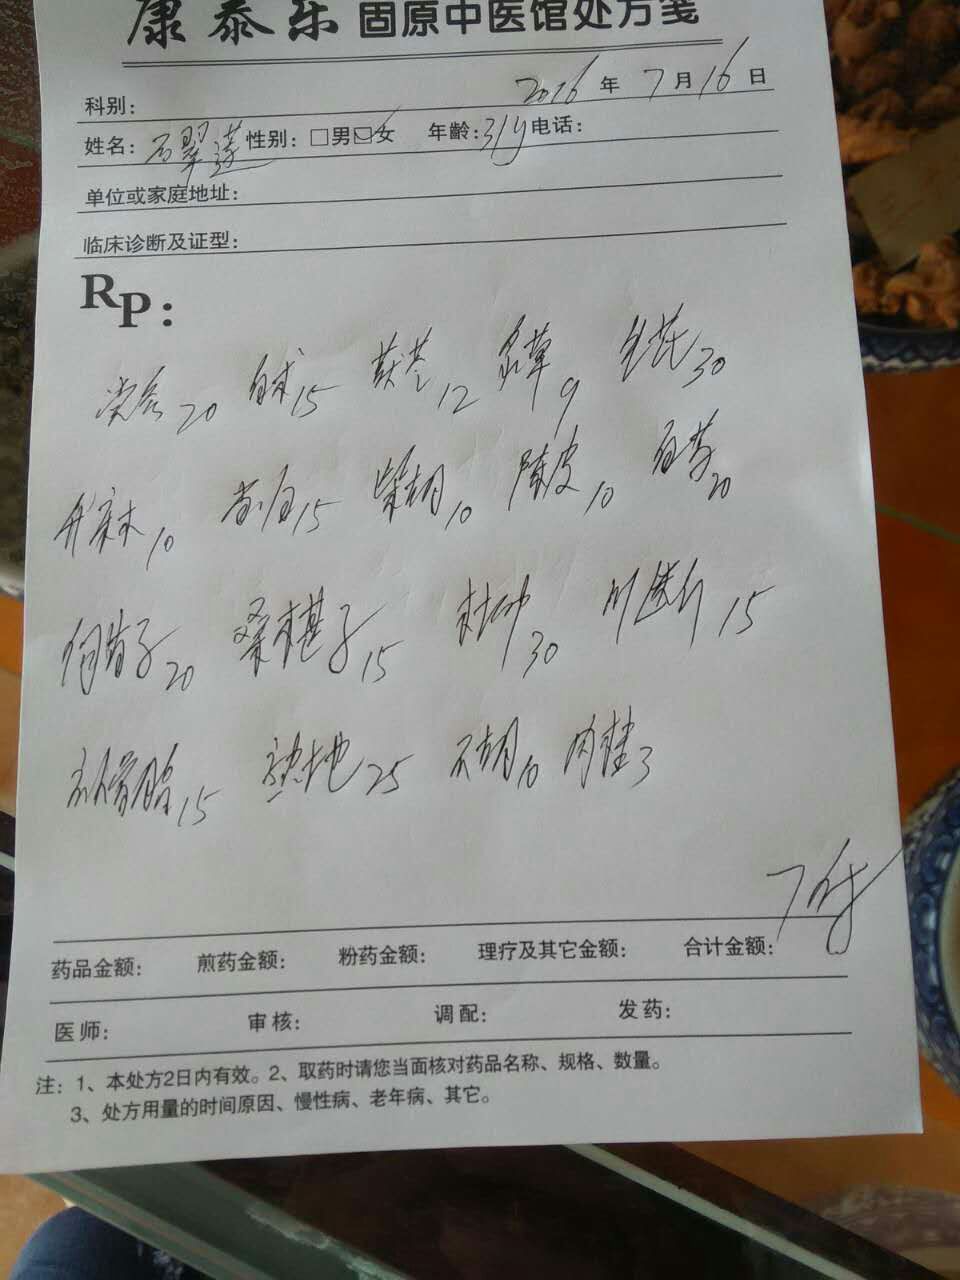 康泰乐 固原中医馆处方笺
科别: 2016年7月16日
姓名: 石翠莲 性别: □男☑女 年龄: 31岁 电话:
单位或家庭地址:
临床诊断及证型:
RP:
党参20 白术15 茯苓12 炙草9 生芪30
升麻10 当归15 柴胡10 陈皮10 白芍20
枸杞子20 桑椹子15 杜仲30 川断15
补骨脂15 熟地25 前胡10 肉桂3
7付
药品金额: 煎药金额: 粉药金额: 理疗及其它金额: 合计金额:
医师: 审核: 调配: 发药:
注: 1、本处方2日内有效。2、取药时请您当面核对药品名称、规格、数量。
3、处方用量的时间原因、慢性病、老年病、其它。